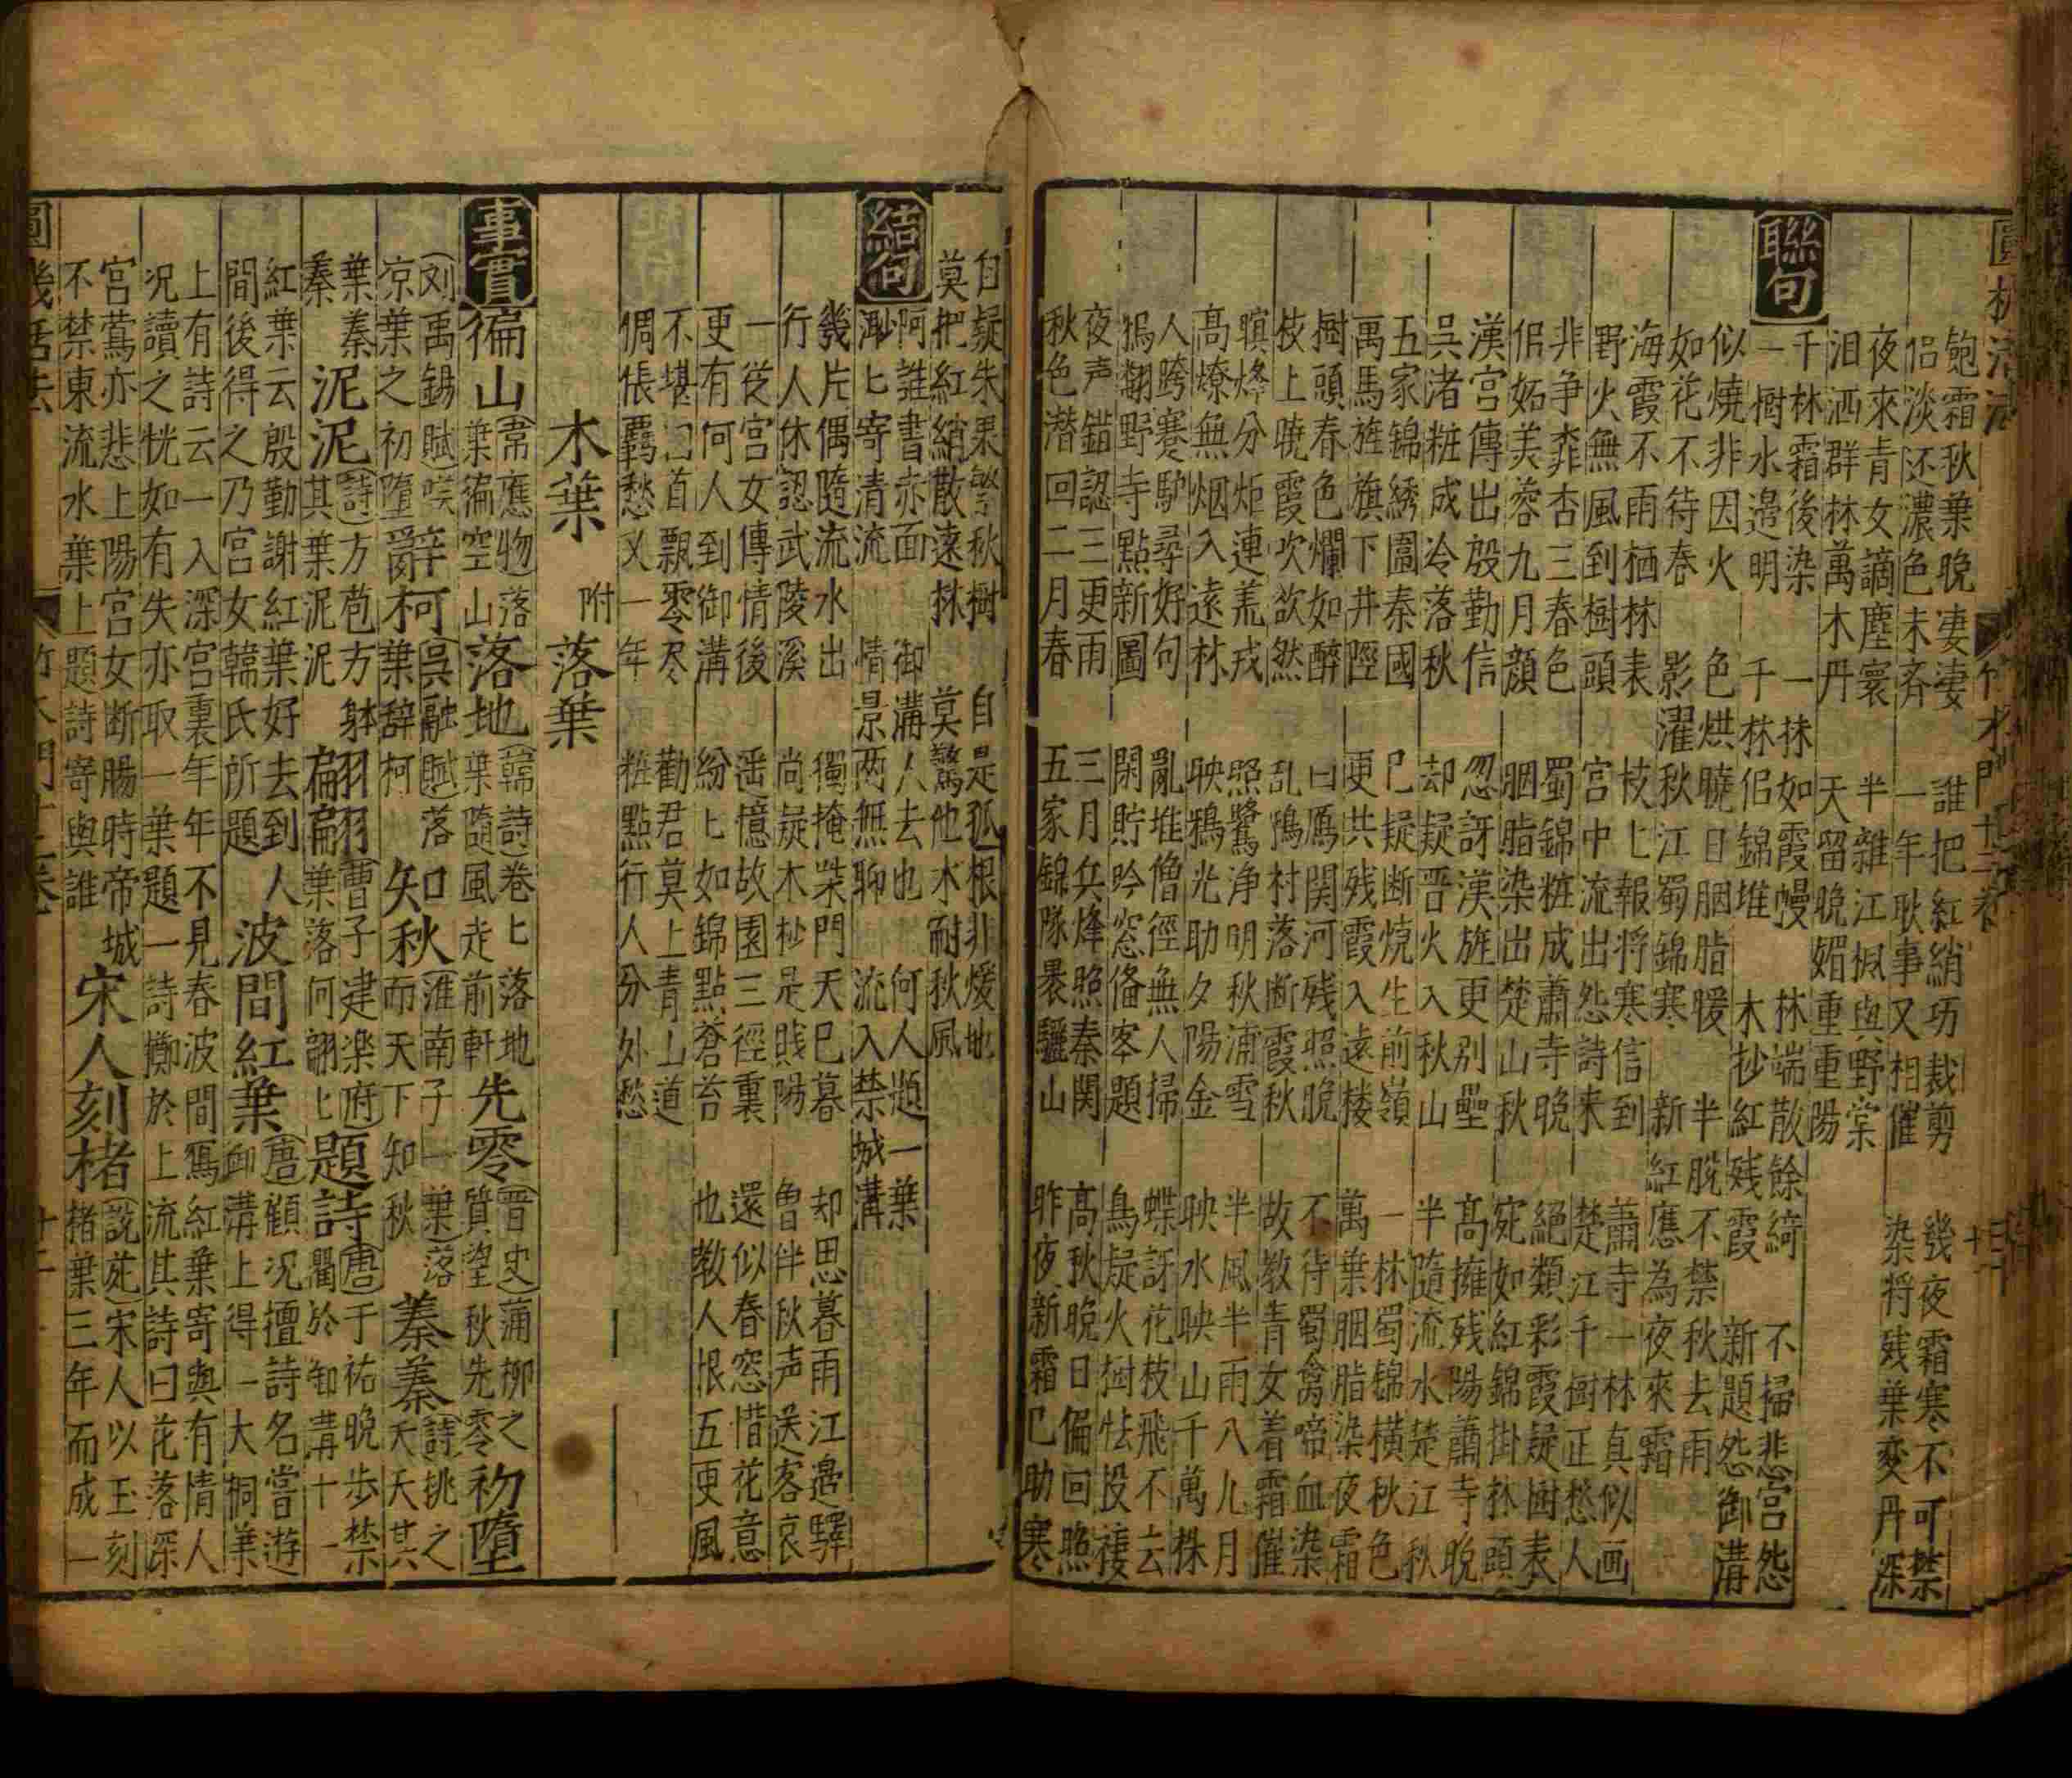 圓機活法 竹木門十二卷 十二
飽霜秋葉晚凄凄 誰把紅綃巧裁剪 幾夜霜寒不可禁
侣淡还濃色未齊 一年耿事又相催 染将残葉变丹深
夜來青女謫塵寰 半雜江楓與野棠
泪洒群林萬木丹 天留晚媚重重陽
聯句
千林霜後染 一抹如霞幔 林端散餘綺 不掃悲宮怨
一樹水邉明 千林侣錦堆 木抄紅残霞 新題怨御溝
似燒非因火 色烘曉日胭脂暖 半脱不禁秋去雨
如花不待春 影濯秋江蜀錦寒 新紅應為夜來霜
海霞不雨栖林表 枝上報将寒信到 蕭寺一林真似画
野火無風到樹頭 宫中流出怨詩来 楚江千樹正愁人
非争桼杏三春色 蜀錦粧成蕭寺晚 絕類彩霞疑樹表
侣妬美蓉九月顔 胭脂染出楚山秋 宛如紅錦掛林頭
漢宫傳出殷勤信 忽訝漢旌更别壘 髙擁残陽蕭寺晚
吳渚粧成冷落秋 却疑晋火入秋山 半隨流水楚江秋
五家錦綉圖秦國 已疑断焼生前嶺 一林蜀锦横秋色
萬馬旌旗下井陘 更共残霞入遠楼 萬葉胭脂染夜霜
樹頭春色爛如醉 曰鴈関河残照晚 不待蜀禽啼血染
枝上曉霞吹欲然 乱鴉村落断霞秋 故教青女着霜催
暝烽分炬連羌戎 照鷺净明秋浦雪 半風半雨八九月
髙燎無烟入遠林 映鴉光助夕陽金 映水映山千萬株
人跨蹇馿尋好句 亂堆僧徑無人掃 蝶訝花枝飛不去
鴉翻野寺點新圖 閑貯吟窓偹客題 鳥疑火樹怯投棲
夜声錯認三更雨 三月兵烽照秦関 髙秋晚日偏回照
秋色潜回二月春 五家錦隊暴驪山 昨夜新霜已助寒
自疑朱果繁秋樹 自是孤根非煖地
莫把紅綃散遠林 莫驚他木耐秋風
結句
阿誰書亦面 御溝人去也 何人題一葉
渺匕寄清流 情景两無聊 流入禁城溝
幾片偶隨流水出 獨掩柴門天已暮 却思暮雨江邉驛
行人休認武陵溪 尚疑木杪是賎陽 曽伴秋声送客哀
一従宫女傳情後 遥憶故園三徑裏 還似春窓惜花意
更有何人到御溝 紛匕如錦點蒼苔 也教人恨五更風
不堪囘首飄零尽 勸君莫上青山道
惆悵覊愁又一年 粧點行人分外愁
木葉 附落葉
事實
徧山 韋應物落葉徧空山 落地 韓詩卷匕落地葉隨風走前軒 先零 晋史蒲柳之質望秋先零 初墮
刘禹錫賦嘆凉葉之初墮 辭柯 呉融賦落葉辞柯 知秋 淮南子一葉落而天下知秋 蓁蓁 詩桃之夭夭其葉蓁蓁
泥泥 詩方苞方躰其葉泥泥 翩翩 曹子建楽府葉落何翩匕 題詩 唐于祐晚歩禁衢於御溝十一
紅葉云殷勤謝紅葉好去到人間後得之乃宫女韓氏所題 波間紅葉 唐顧况擅詩名甞遊御溝上得一大桐葉
上有詩云一入深宫裏年年不見春波間寫紅葉寄與有情人况讀之恍如有失亦取一葉題一詩擲於上流其詩曰花落深
宫鶯亦悲上陽宫女断膓時帝城不禁東流水葉上題詩寄與誰 宋人刻楮 說苑宋人以玉刻楮葉三年而成一
圓機活法 竹木門十二卷 十二